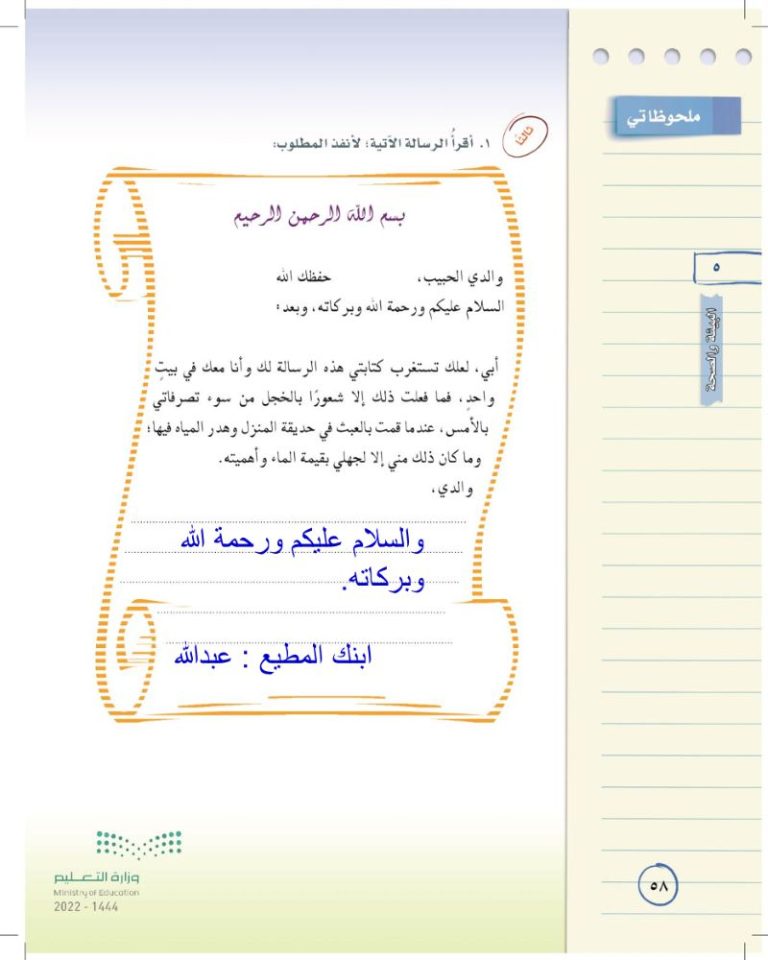 ملحوظاتي
ثالثًا
١. أقرأُ الرسالة الآتية؛ لأنفذ المطلوب:
بسم الله الرحمن الرحيم
والدي الحبيب، حفظك الله
السلام عليكم ورحمة الله وبركاته، وبعد:
أبي، لعلك تستغرب كتابتي هذه الرسالة لك وأنا معك في بيتٍ
واحدٍ، فما فعلت ذلك إلا شعورًا بالخجل من سوء تصرفاتي
بالأمس، عندما قمت بالعبث في حديقة المنزل وهدر المياه فيها؛
وما كان ذلك مني إلا لجهلي بقيمة الماء وأهميته.
والدي،
والسلام عليكم ورحمة الله
وبركاته.
ابنك المطيع : عبدالله
٥
البيئة والصحة
وزارة التعليم
Ministry of Education
2022 - 1444
٥٨